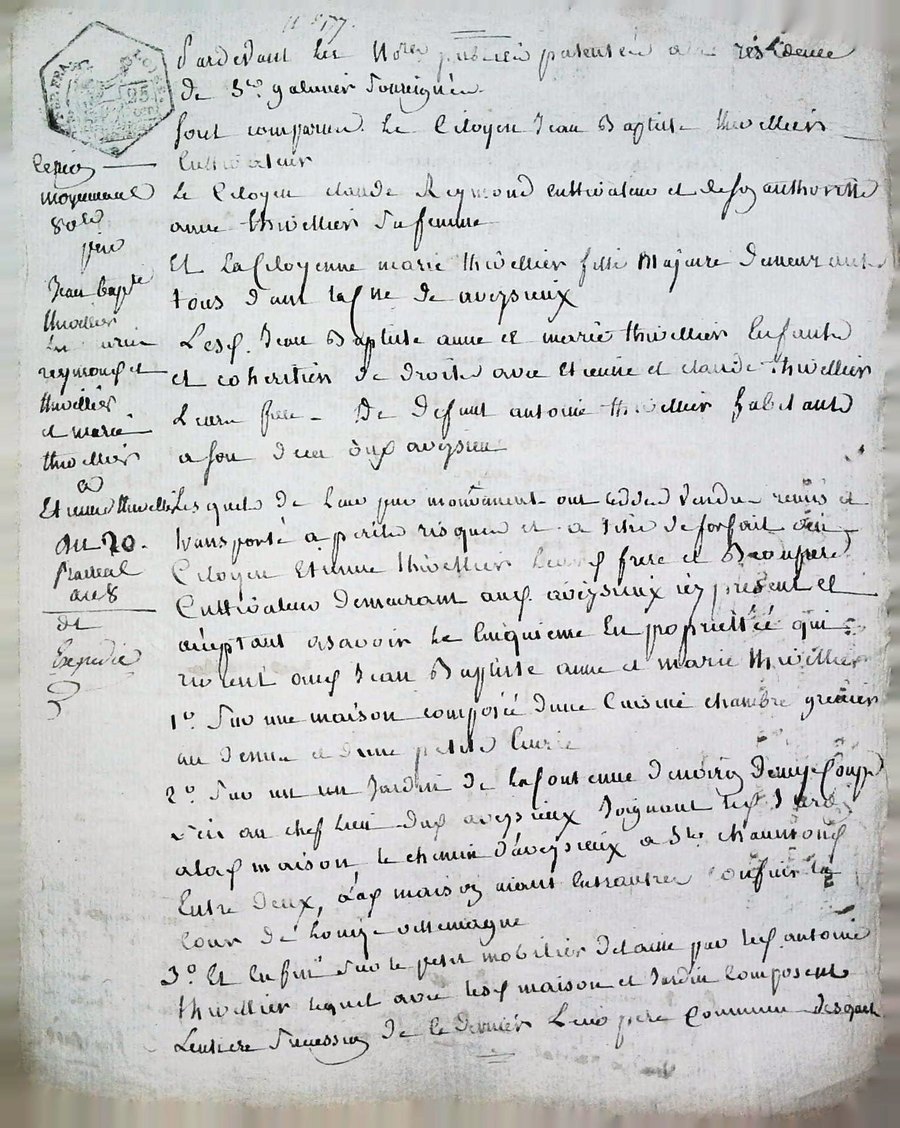 n° 577.
Pardevant les Nores publics patentés a la résidence
de St galmier Soussignés
sont comparus le Citoyen Jean Baptiste thivellier
Cultivateur
Le Citoyen claude Reymond cultivateur et de son authorité
anne thivellier sa femme
Et la Citoyenne marie thivellier fille Majeure demeurants
tous dans la Cne de aveysieux
Lesd. Jean Baptiste anne et marie thivellier Enfants
et coheritiers de droit avec Etienne et claude thivellier
Leurs freres de defunt antoine thivellier habitant
a son deces aud aveysieux
Lesquels de leur gré ont cédé vendu remis et
transporté a perils risques et a titre de forfait au
Citoyen Etienne thivellier leurd frere et Beaufrere
Cultivateur demeurant aud. aveysieux icy présent et
acceptant asavoir le Cinquieme En proprietée qui
revient aud Jean Baptiste anne et marie thivellier
1°. Sur une maison composée d'une Cuisine chambre grenier
au dessus et d'une petite Curie
2°. Sur un Jardin de la Contenue d'environ demy Coupe
sis au chef lieu dud aveysieux Joignant led Jardin
alad maison le chemin d'aveysieux a St. chaumond
Entre deux, lad maison aiant
Cour de Louis villemagne
3°. Et Enfin Sur le petit mobilier delaissé par led. antoine
thivellier lequel avec lesd maison et Jardin Composent
Lentiere Succession de ce dernier Leur pere Commun desquels
Cession
moyennant
80lt
par
Jean Bapte
thivellier
reymond et
thivellier
et marie
thivellier
a
Etienne thivellier
du 20.
Prairial
an 8
dt
Expedié